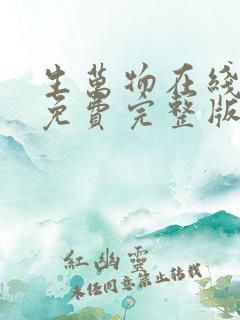 生萬物在綫
免費完整版
紅幽靈
未經同意禁止轉載